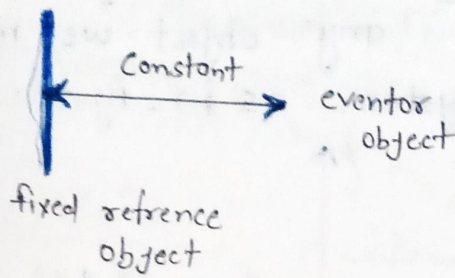 constant
eventor
object
fixed refrence
object